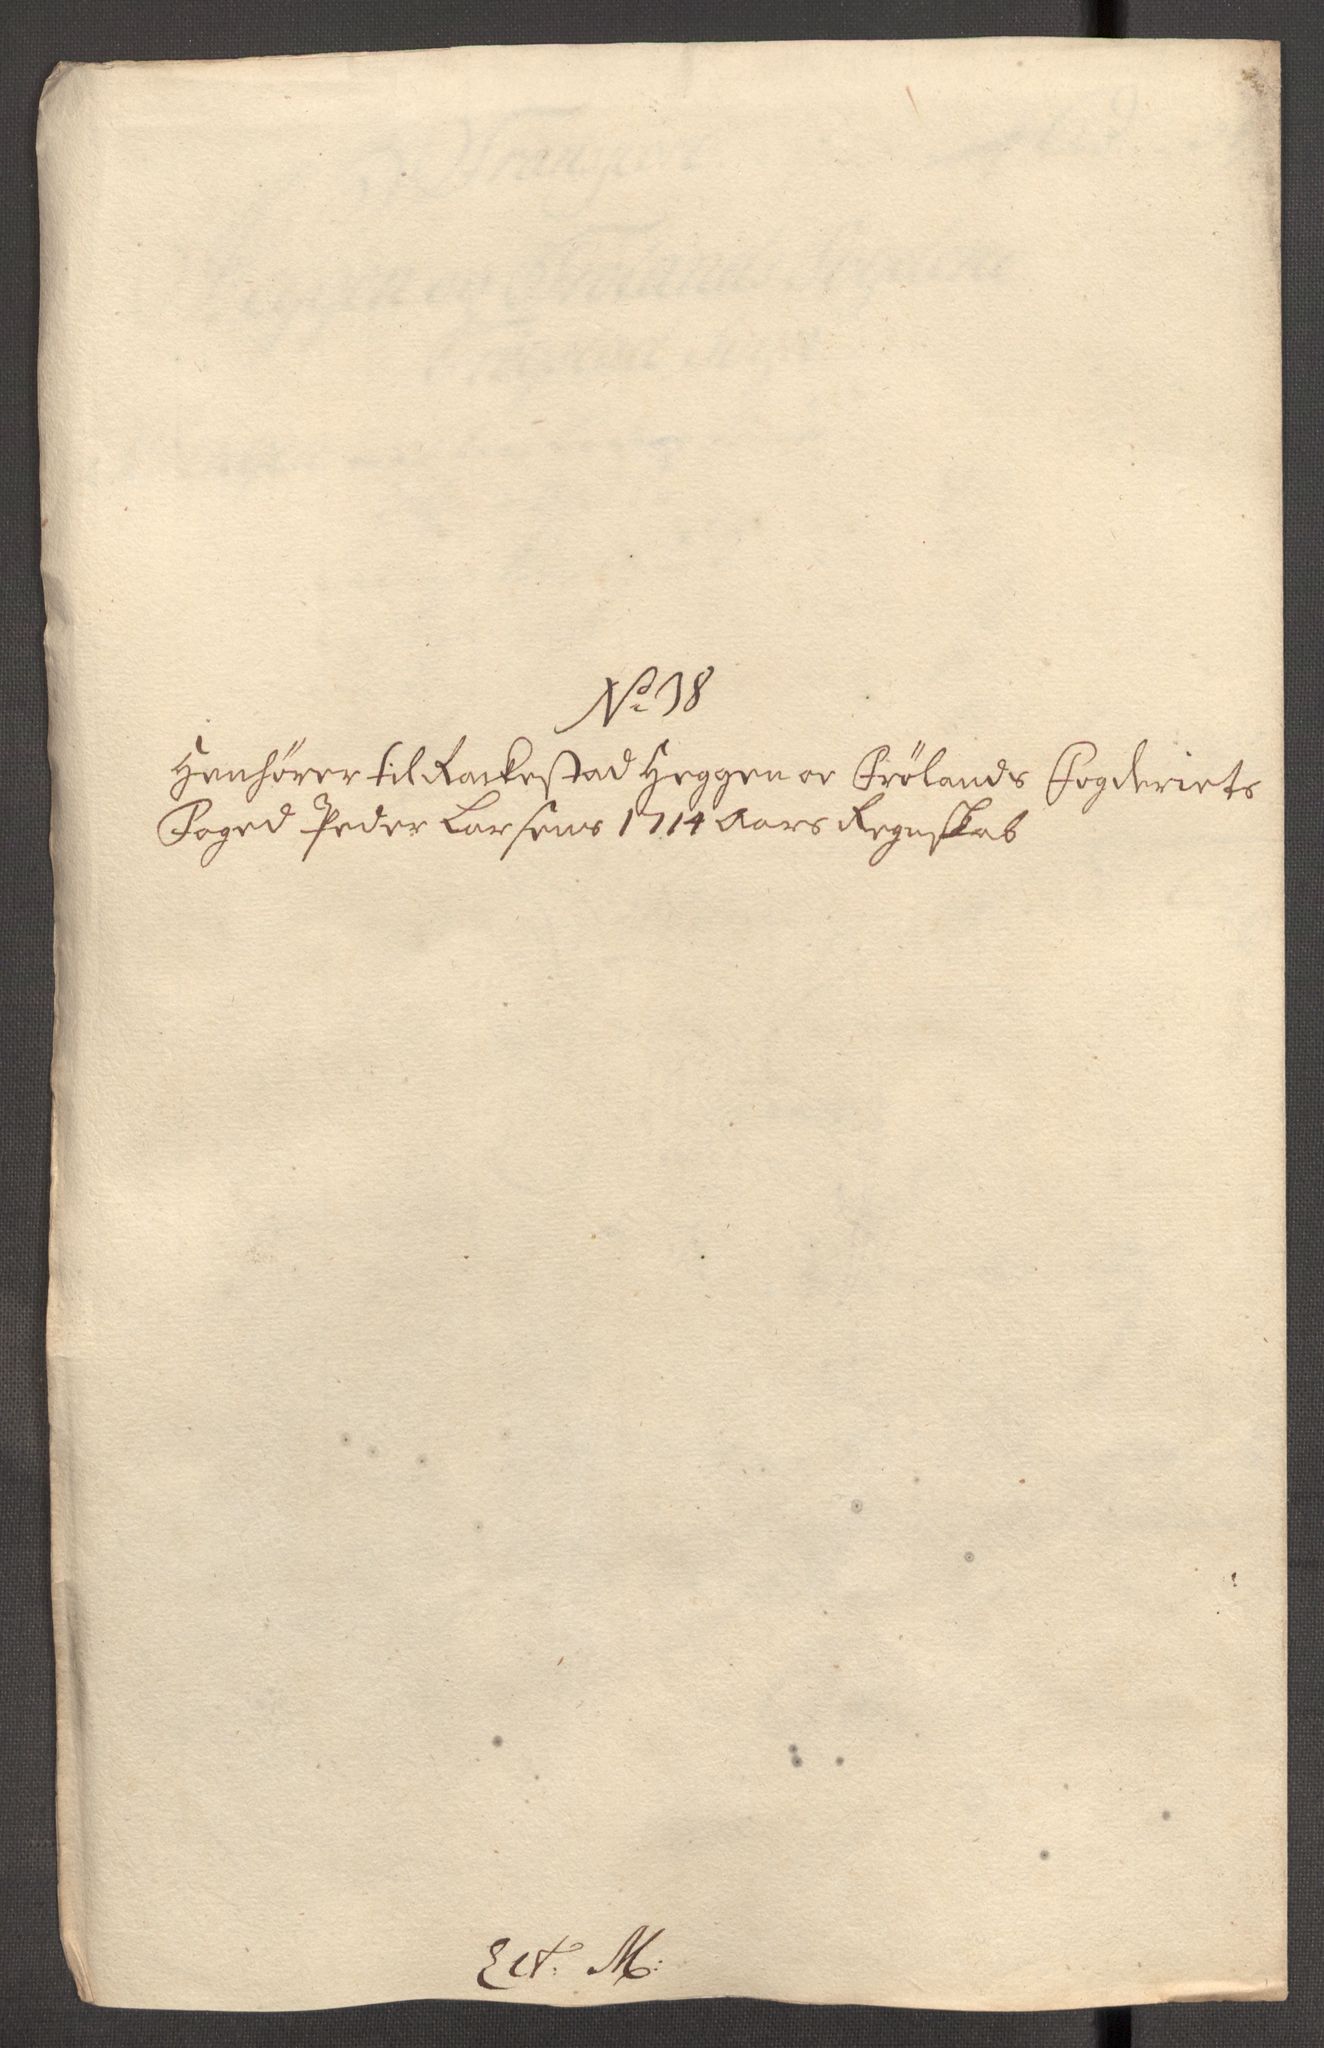 No 38
Henhører til Rackestad Heggen oc Frølands Fogderiets
Foged Peder Larsens 1714 Aars Regnskab
Lit. M: